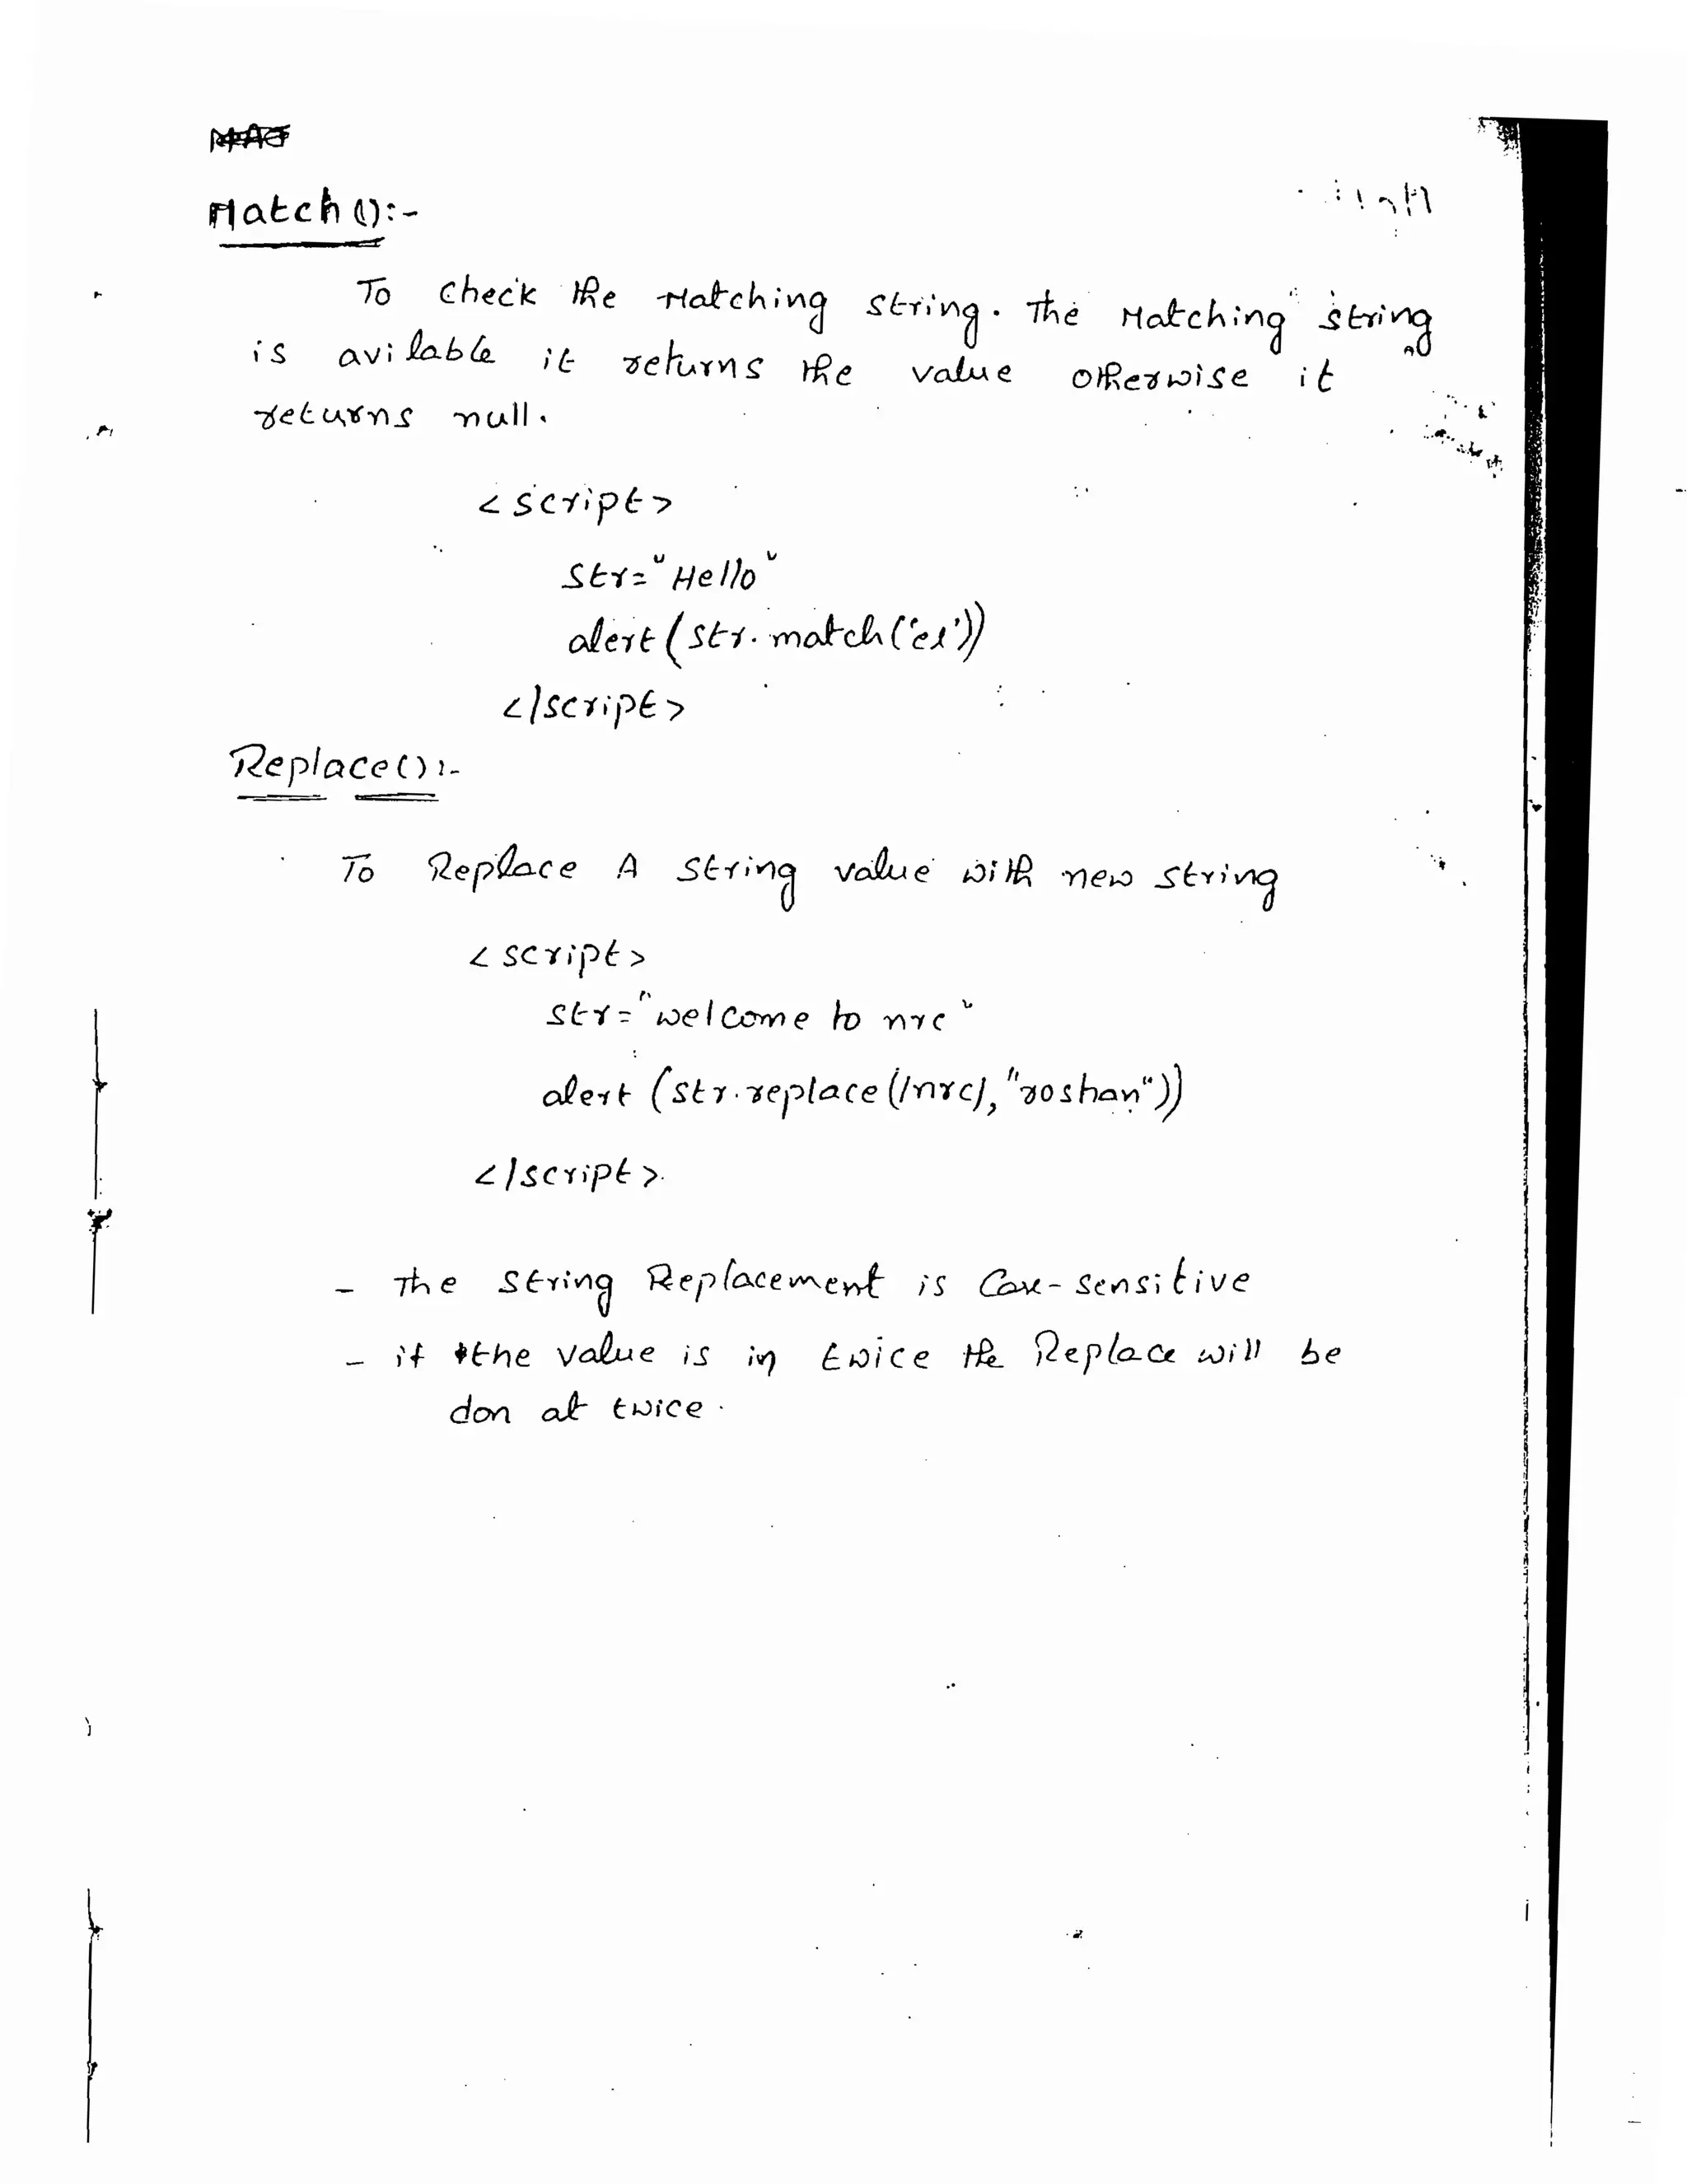 Match():-
To check the Matching string. The Matching string
is avilable it returns the value otherwise it
returns null.
<script>
str="Hello"
alert(str.match('el'))
</script>
Replace():-
To Replace A string value with new string
<script>
str="welcome to nrc"
alert(str.replace(/nrc/,"roshan"))
</script>
- The string Replacement is Case-sensitive
- if the value is in twice the Replace will be
don at twice.